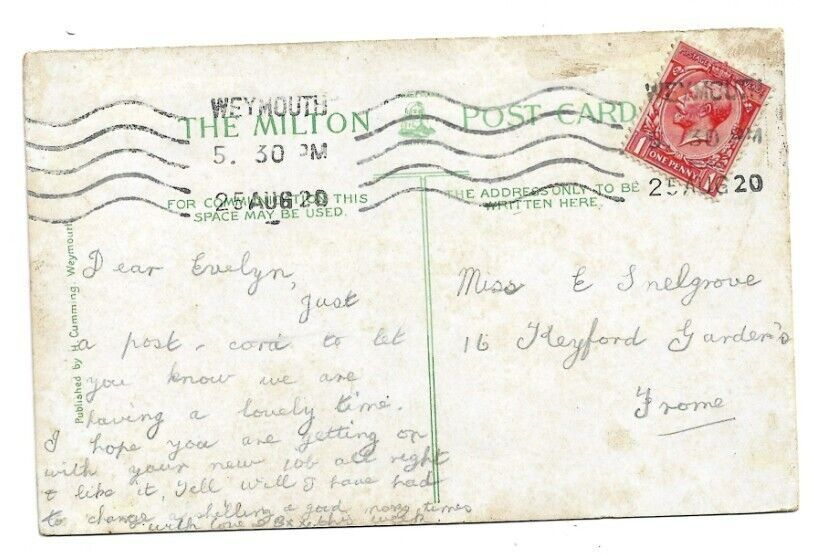 WEYMOUTH
5. 30 PM
25 AUG 20
THE MILTON
POST CARD
WEYMOUTH
30 PM
25 AUG 20
ONE PENNY
FOR COMMUNICATION THIS
SPACE MAY BE USED.
THE ADDRESS ONLY TO BE
WRITTEN HERE.
Published by H. Cumming, Weymouth
Dear Evelyn,
Just
a post-card to let
you know we are
having a lovely time.
I hope you are getting on
with your new job all right
& like it, Tell Will I have had
to change a shilling a good many times
with love this week.
Miss E Snelgrove
16 Keyford Garden's
Frome